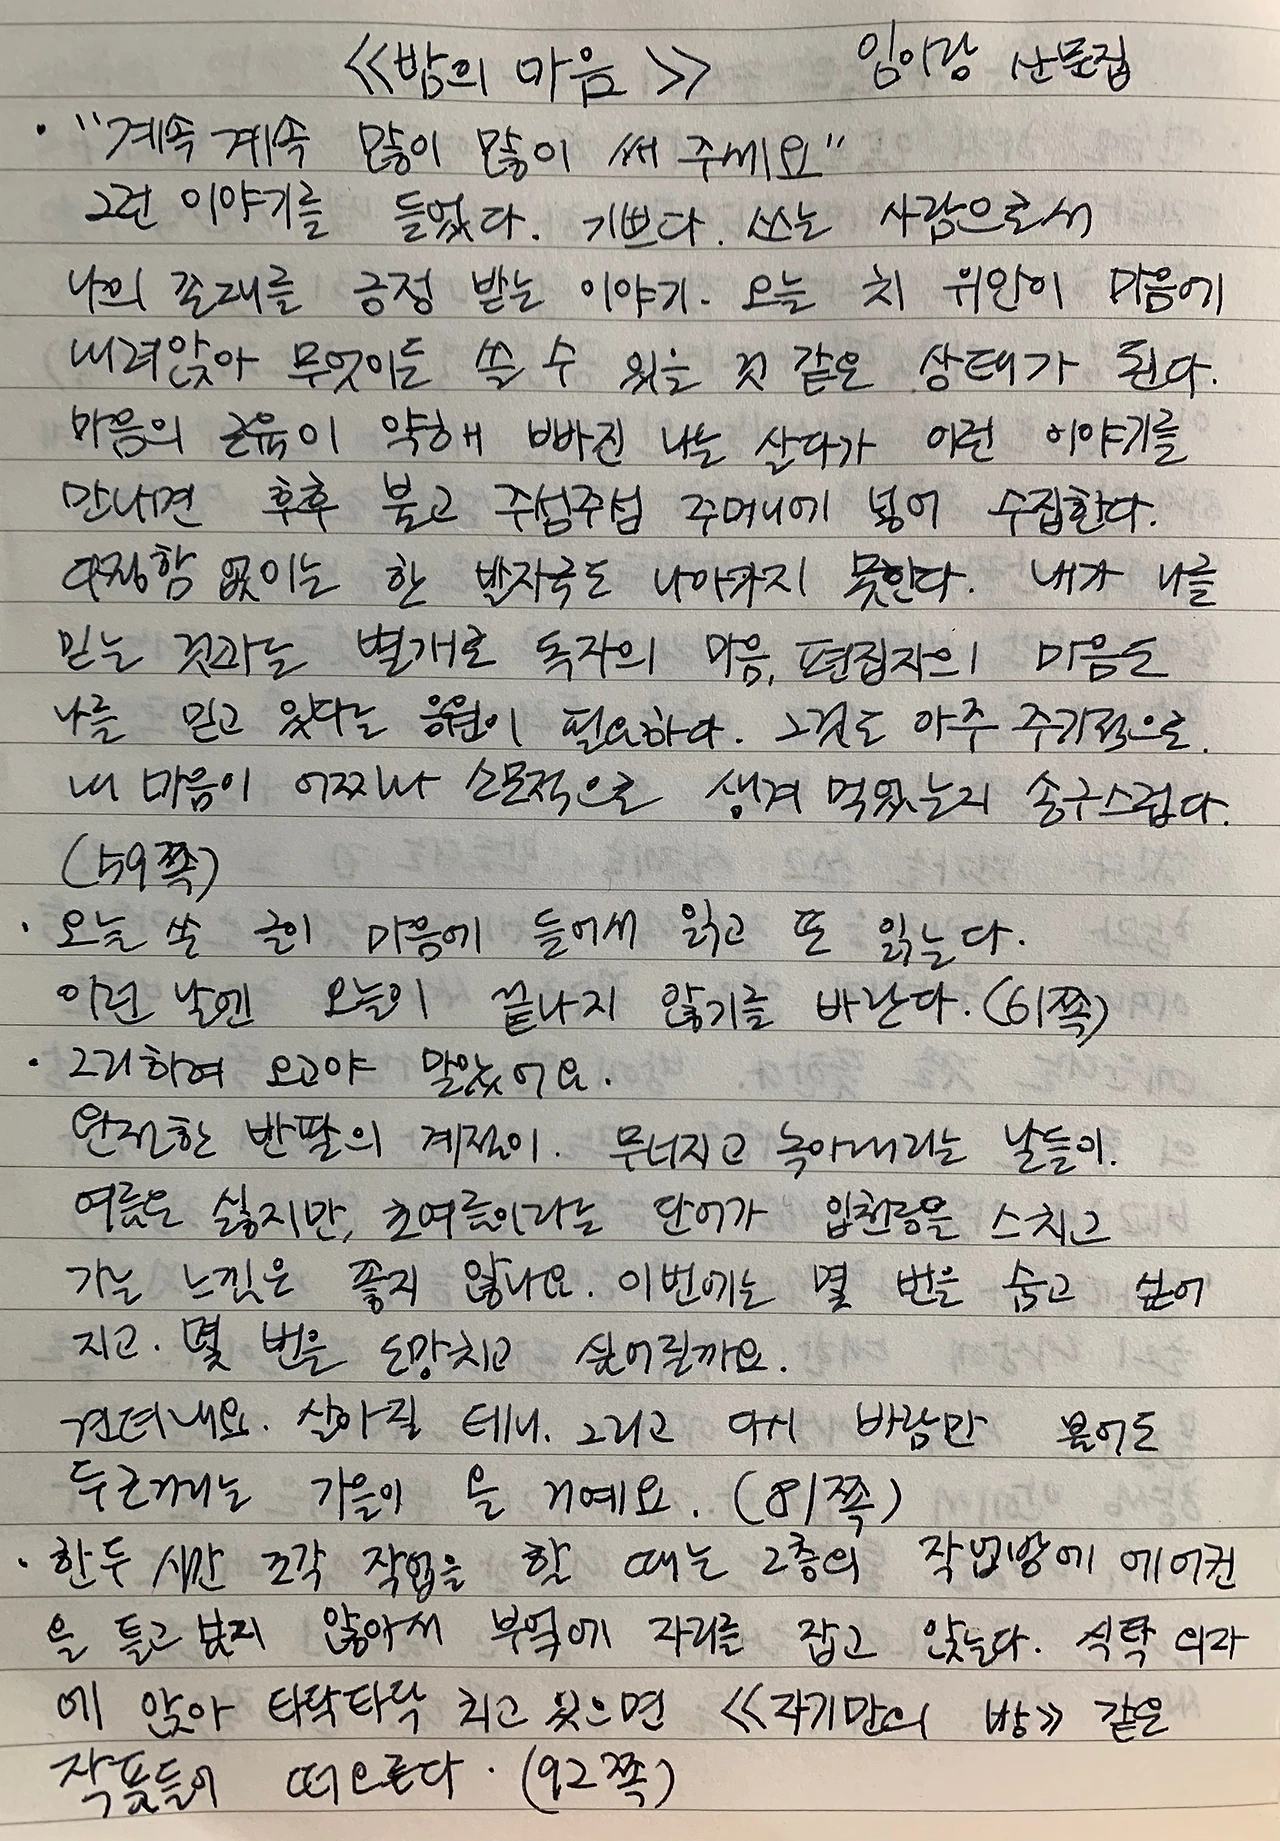 <<밤의 마음>> 임이랑 산문집
· "계속 계속 많이 많이 써 주세요"
그런 이야기를 들었다. 기쁘다. 쓰는 사람으로서
나의 존재를 긍정 받는 이야기. 오늘 치 위안이 마음에
내려앉아 무엇이든 쓸 수 있을 것 같은 상태가 된다.
마음의 근육이 약해 빠진 나는 살다가 이런 이야기를
만나면 후후 불고 주섬주섬 주머니에 넣어 수집한다.
다정함 없이는 한 발자국도 나아가지 못한다. 내가 나를
믿는 것과는 별개로 독자의 마음, 편집자의 마음도
나를 믿고 있다는 응원이 필요하다. 그것도 아주 주기적으로.
내 마음이 어찌나 소모적으로 생겨 먹었는지 송구스럽다.
(59쪽)
· 오늘 쓴 글이 마음에 들어서 읽고 또 읽는다.
이런 날엔 오늘이 끝나지 않기를 바란다. (61쪽)
· 그리하여 오고야 말았어요.
완전한 반팔의 계절이. 무너지고 녹아내리는 날들이.
여름은 싫지만, 초여름이라는 단어가 입천장을 스치고
가는 느낌은 좋지 않나요. 이번에는 몇 번을 숨고 싶어
지고. 몇 번을 도망치고 싶어질까요.
견뎌내요. 살아질 테니. 그리고 다시 바람만 불어도
두근거리는 가을이 올 거예요. (81쪽)
· 한두 시간 조각 작업을 할 때는 2층의 작업방에 에어컨
을 틀고 싶지 않아서 부엌에 자리를 잡고 앉는다. 식탁 의자
에 앉아 타닥타닥 치고 있으면 <<자기만의 방>> 같은
작품들이 떠오른다. (92쪽)